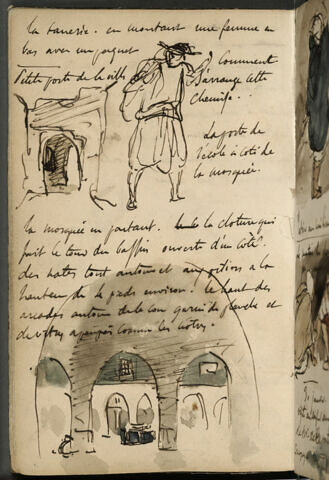 la tanerie. en montant une femme en
bas avec un paquet
Petite porte de la ville
Comment
s'arrange cette
chemise.
La porte de
l'école à côté de
la mosquée.
la mosquée en partant. la cloture qui
fait le tour du bassin ouverte d'un côté.
des nates tout autour et aux piliers a la
hauteur de 4 pieds environ. le haut des
arcades autour de la cour garni de
et
de vitres apeuprès comme les notres.